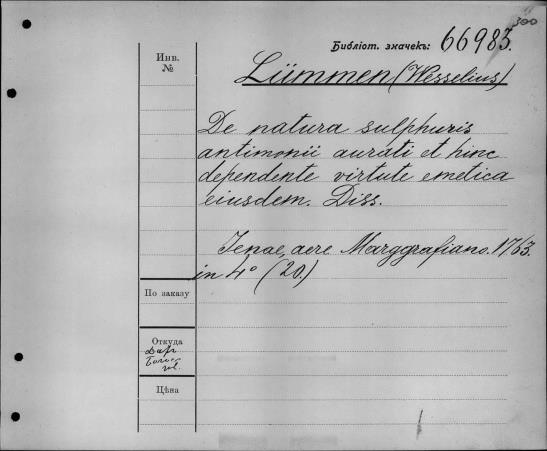 300
Библіот. значекъ: 66983.
Инв.
№
Lümmen (Wesselius)
De natura sulphuris
antimonii aurati et hinc
dependente virtute emetica
eiusdem. Diss.
Ienae, aere Marggrafiano. 1763.
in 4° (20.)
По заказу
Откуда
Даръ
Цѣна